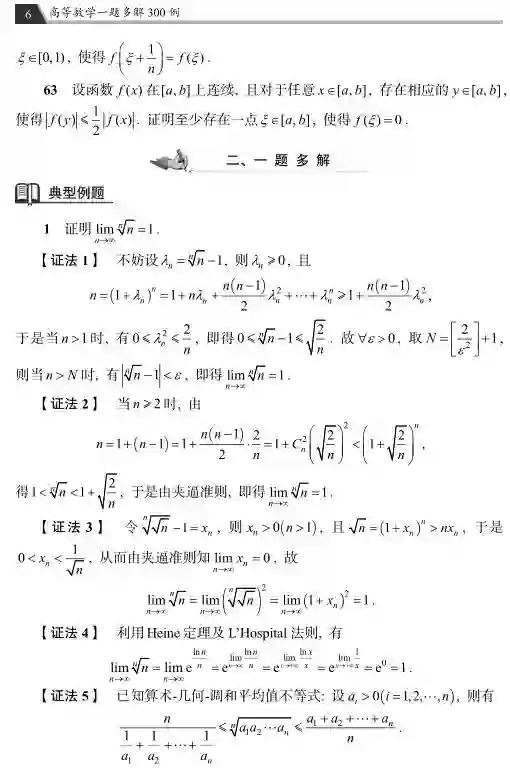 6 高等数学一题多解 300 例
ξ∈[0,1), 使得 f(ξ+1/n)=f(ξ).
63 设函数 f(x) 在[a,b]上连续, 且对于任意 x∈[a,b], 存在相应的 y∈[a,b],
使得|f(y)|⩽1/2|f(x)|. 证明至少存在一点 ξ∈[a,b], 使得 f(ξ)=0.
二、一 题 多 解
典型例题
1 证明 lim_{n→∞} ⁿ√n=1.
【证法 1】 不妨设 λₙ=ⁿ√n−1, 则 λₙ⩾0, 且
n=(1+λₙ)ⁿ=1+nλₙ+n(n−1)/2 λₙ²+⋯+λₙⁿ⩾1+n(n−1)/2 λₙ²,
于是当 n>1 时, 有 0⩽λₙ²⩽2/n, 即得 0⩽ⁿ√n−1⩽√(2/n). 故 ∀ε>0, 取 N=[2/ε²]+1,
则当 n>N 时, 有|ⁿ√n−1|<ε, 即得 lim_{n→∞} ⁿ√n=1.
【证法 2】 当 n⩾2 时, 由
n=1+(n−1)=1+n(n−1)/2·2/n=1+Cₙ²(√(2/n))²<(1+√(2/n))ⁿ,
得 1<ⁿ√n<1+√(2/n), 于是由夹逼准则, 即得 lim_{n→∞} ⁿ√n=1.
【证法 3】 令 ⁿ√(√n)−1=xₙ, 则 xₙ>0(n>1), 且 √n=(1+xₙ)ⁿ>nxₙ, 于是
0<xₙ<1/√n, 从而由夹逼准则知 lim_{n→∞} xₙ=0, 故
lim_{n→∞} ⁿ√n=lim_{n→∞}(ⁿ√(√n))²=lim_{n→∞}(1+xₙ)²=1.
【证法 4】 利用 Heine 定理及 L'Hospital 法则, 有
lim_{n→∞} ⁿ√n=lim_{n→∞} e^{ln n/n}=e^{lim_{n→∞} ln n/n}=e^{lim_{x→+∞} ln x/x}=e^{lim_{x→+∞} 1/x}=e⁰=1.
【证法 5】 已知算术-几何-调和平均值不等式: 设 aᵢ>0(i=1,2,⋯,n), 则有
n/(1/a₁+1/a₂+⋯+1/aₙ)⩽ⁿ√(a₁a₂⋯aₙ)⩽(a₁+a₂+⋯+aₙ)/n.